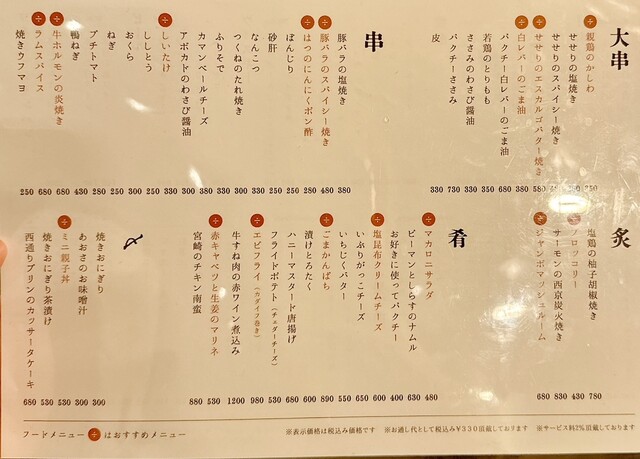 大串
親鶏のかしわ
せせりの塩焼き
せせりのスパイシー焼き
せせりのエスカルゴバター焼き
白レバーのごま油
パクチー白レバーのごま油
若鶏のとりもも
ささみのわさび醤油
パクチーささみ
皮
330 730 330 350 680 380 580
串
豚バラの塩焼き
豚バラのスパイシー焼き
はつのにんにくポン酢
ぼんじり
砂肝
なんこつ
つくねのたれ焼き
ふりそで
カマンベールチーズ
アボカドのわさび醤油
しいたけ
ししとう
おくら
ねぎ
プチトマト
鴨ねぎ
牛ホルモンの炎焼き
ラムスパイス
焼きウフマヨ
250 680 680 430 280 250 250 300 250 330 300 380 330 300 330 250 250 280 480 380
炙
塩鶏の柚子胡椒焼き
ブロッコリー
サーモンの西京炭火焼き
ジャンボマッシュルーム
680 830 430 780
肴
マカロニサラダ
ピーマンとしらすのナムル
お好きに使ってパクチー
塩昆布クリームチーズ
いぶりがっこチーズ
いちじくバター
ごまかんぱち
漬けとろたく
ハニーマスタード唐揚げ
フライドポテト(チェダーチーズ)
エビフライ(カダイフ巻き)
牛すね肉の赤ワイン煮込み
赤キャベツと生姜のマリネ
宮崎のチキン南蛮
880 530 1200 980 530 680 680 890 550 650 600 400 630 480
〆
焼きおにぎり
あおさのお味噌汁
ミニ親子丼
焼きおにぎり茶漬け
西通りプリンのカッサータケーキ
680 530 530 300 300
フードメニュー はおすすめメニュー
※表示価格は税込み価格です ※お通し代として税込み¥330頂戴しております ※サービス料2%頂戴しております